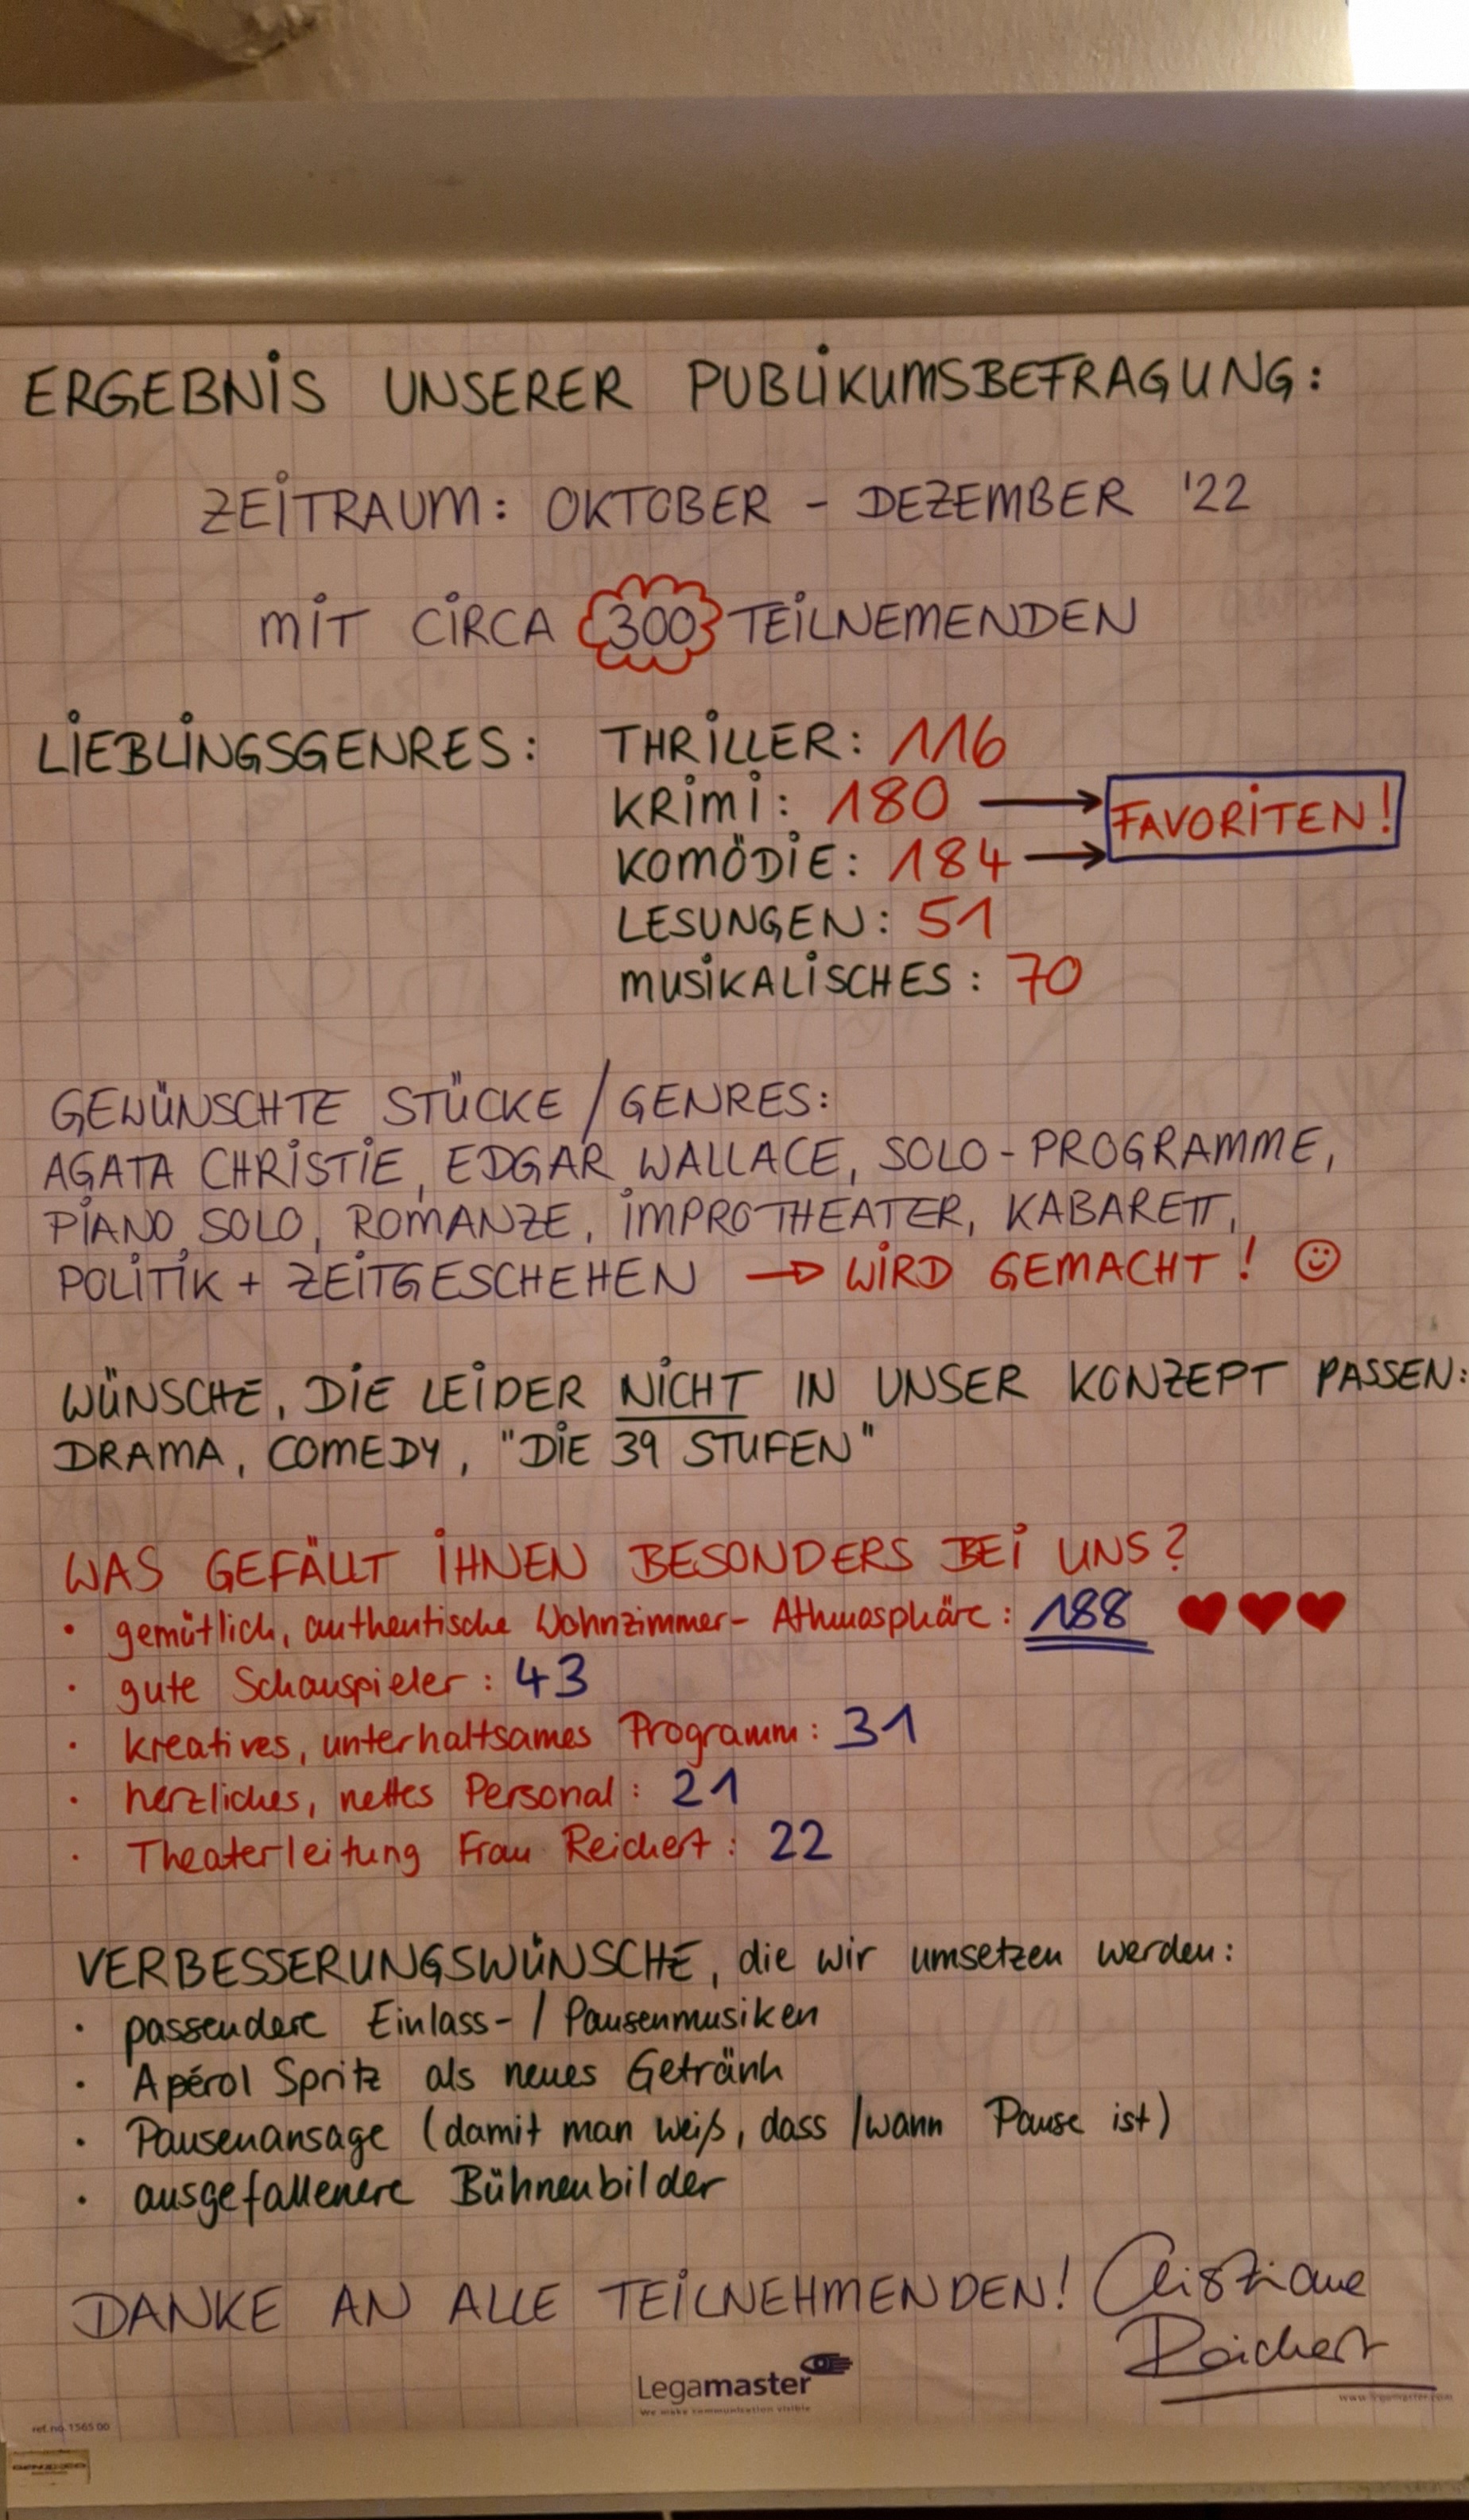 ERGEBNIS UNSERER PUBLIKUMSBEFRAGUNG:
ZEITRAUM: OKTOBER - DEZEMBER '22
MIT CIRCA 300 TEILNEMENDEN
LIEBLINGSGENRES: THRILLER: 116
KRIMI: 180 → FAVORITEN!
KOMÖDIE: 184 →
LESUNGEN: 51
MUSIKALISCHES: 70
GEWÜNSCHTE STÜCKE / GENRES:
AGATA CHRISTIE, EDGAR WALLACE, SOLO-PROGRAMME,
PIANO SOLO, ROMANZE, IMPROTHEATER, KABARETT,
POLITIK + ZEITGESCHEHEN → WIRD GEMACHT! ☺
WÜNSCHE, DIE LEIDER NICHT IN UNSER KONZEPT PASSEN:
DRAMA, COMEDY, "DIE 39 STUFEN"
WAS GEFÄLLT IHNEN BESONDERS BEI UNS?
· gemütlich, authentische Wohnzimmer- Athmosphäre: 188 ♥♥♥
· gute Schauspieler: 43
· kreatives, unterhaltsames Programm: 31
· herzliches, nettes Personal: 21
· Theaterleitung Frau Reichert: 22
VERBESSERUNGSWÜNSCHE, die wir umsetzen werden:
· passendere Einlass- / Pausenmusiken
· Apérol Spritz als neues Getränk
· Pausenansage (damit man weiß, dass /wann Pause ist)
· ausgefallenere Bühnenbilder
DANKE AN ALLE TEILNEHMENDEN! Christiane
Reichert
Legamaster
We make communication visible
www.legamaster.com
ref.no.1565 00